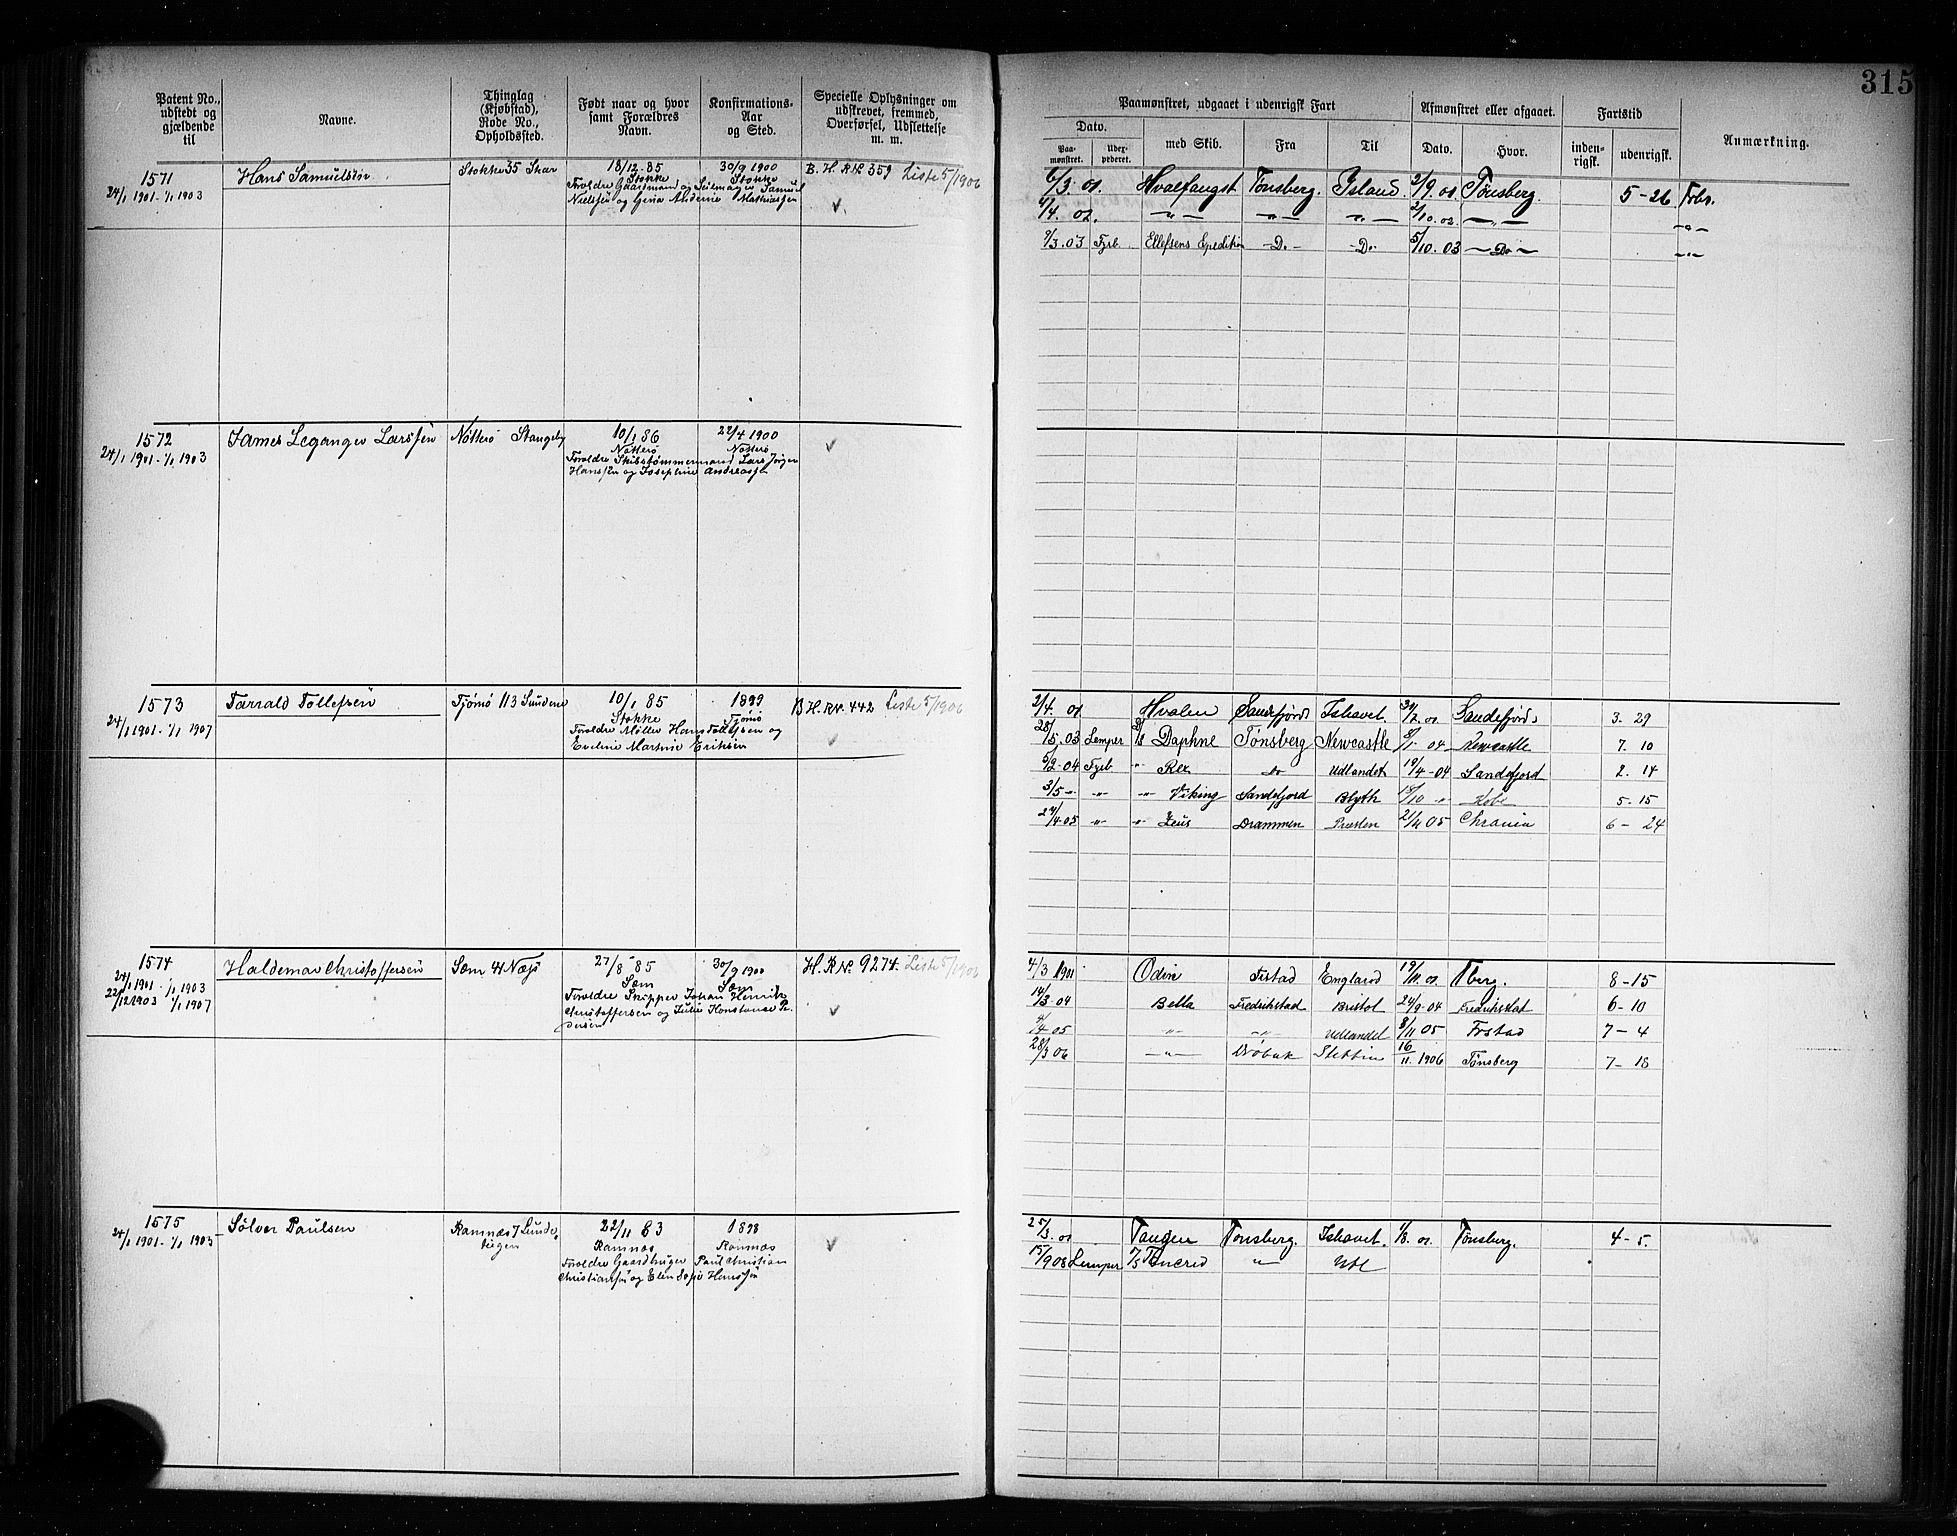 315
Patent No., udstedt og gjældende til
Navne.
Thinglag (Kjøbstad), Rode No., Opholdssted.
Født naar og hvor samt Forældres Navn.
Konfirmations- Aar og Sted.
Specielle Oplysninger om udskrevet, fremmed, Overførsel, Udslettelse m. m.
Paamønstret, udgaaet i udenrigsk Fart
Afmønstret eller afgaaet.
Fartstid
Anmærkning.
Dato.
Paa- mønstret.
med Skib.
Fra
Til
Dato.
Hvor.
inden- rigsk.
udenrigsk.
1571
24/1 1901 - 1/1 1903
Hans Samuelsen
Stokke 35 Skar
18/12 85
Stokke
30/9 1900
Stokke
Foreldre Gaardmand og Seilmager Samuel
Nielsen og Gina Andrine Mathiassen
B. H. R№ 359 Liste 5/1906
6/3. 01. Hvalfangst Tønsberg. Island 2/9. 01. Tønsberg. 5-26 Frbr.
4/4. 02. -"- -"- -"- 2/10. 02 -"- -"-
9/3. 03 Fyrb. Ellefsens Expedition -Do- -Do- 5/10. 03 -Do- -"-
1572
24/1 1901 - 1/1 1903
James Leganger Larssen
Nøtterø Stangeby
10/1 86
Nøtterø
22/4 1900
Nøtterø
Foreldre Skibstømmermand Lars Jørgen
Hanssen og Josephine Andreasen
1573
24/1 1901 - 1/1 1907
Tarrald Tollefsen
Tjømø 113 Sundene
10/1 85
Stokke
1899
Tjømø
Foreldre Møller Hans Tollefsen og
Eveline Martine Eriksen
B H. R№. 442 Liste 5/1906
2/4 01 Hvalen Sandefjord Ishavet. Sandefjord 3. 29
28/5. 03 Lemper Daphne Tønsberg Newcastle 8/1 04 Newcastle 7. 10
9/2. 04 Fyrb. " Rex do Udlandet 19/4 - 04 Sandefjord 2. 14
3/5 -"- -"- -"- Viking Sandefjord Blyth 18/10 " Kobe 5. 15
27/4. 05 -"- " Zeus Drammen Preston 21/11 05 Chrania 6 - 24
1574
24/1 1901 - 1/1 1903
22/12 1903 1/1 1907
Haldemar Christoffersen
Sæm 44 Næs
27/8 85
Sæm
30/9 1900
Sæm
Foreldre Skipper Johan Henrik
Christoffersen og Julie Konstanse Pe-
dersen
H. R№. 9274. Liste 5/1906
4/3 1901 Odin Frstad England 19/11. 01. Tberg. 8-15
14/3. 04 Bella Fredrikstad Bristol 24/9. 04 Fredrikstad 6-10
4/4 05 -"- -"- Udlandet 8/11 05 Frstad 7-4
28/3 06 -"- Drøbak Stettin 16/11. 1906 Tønsberg 7-18
1575
24/1 1901. - 1/1 1903
Sølver Paulsen
Ramnæs 7 Lunde-
teigen
22/11 83
Ramnæs
1898
Ramnæs
Foreldre Gaardbruger Paul Christian
Christiansen og Elen Sofie Hanssen
25/3. 01 Tangen Tønsberg. Ishavet. 1/8. 01. Tønsberg. 4-5.
15/9 08 Lemper " Utl